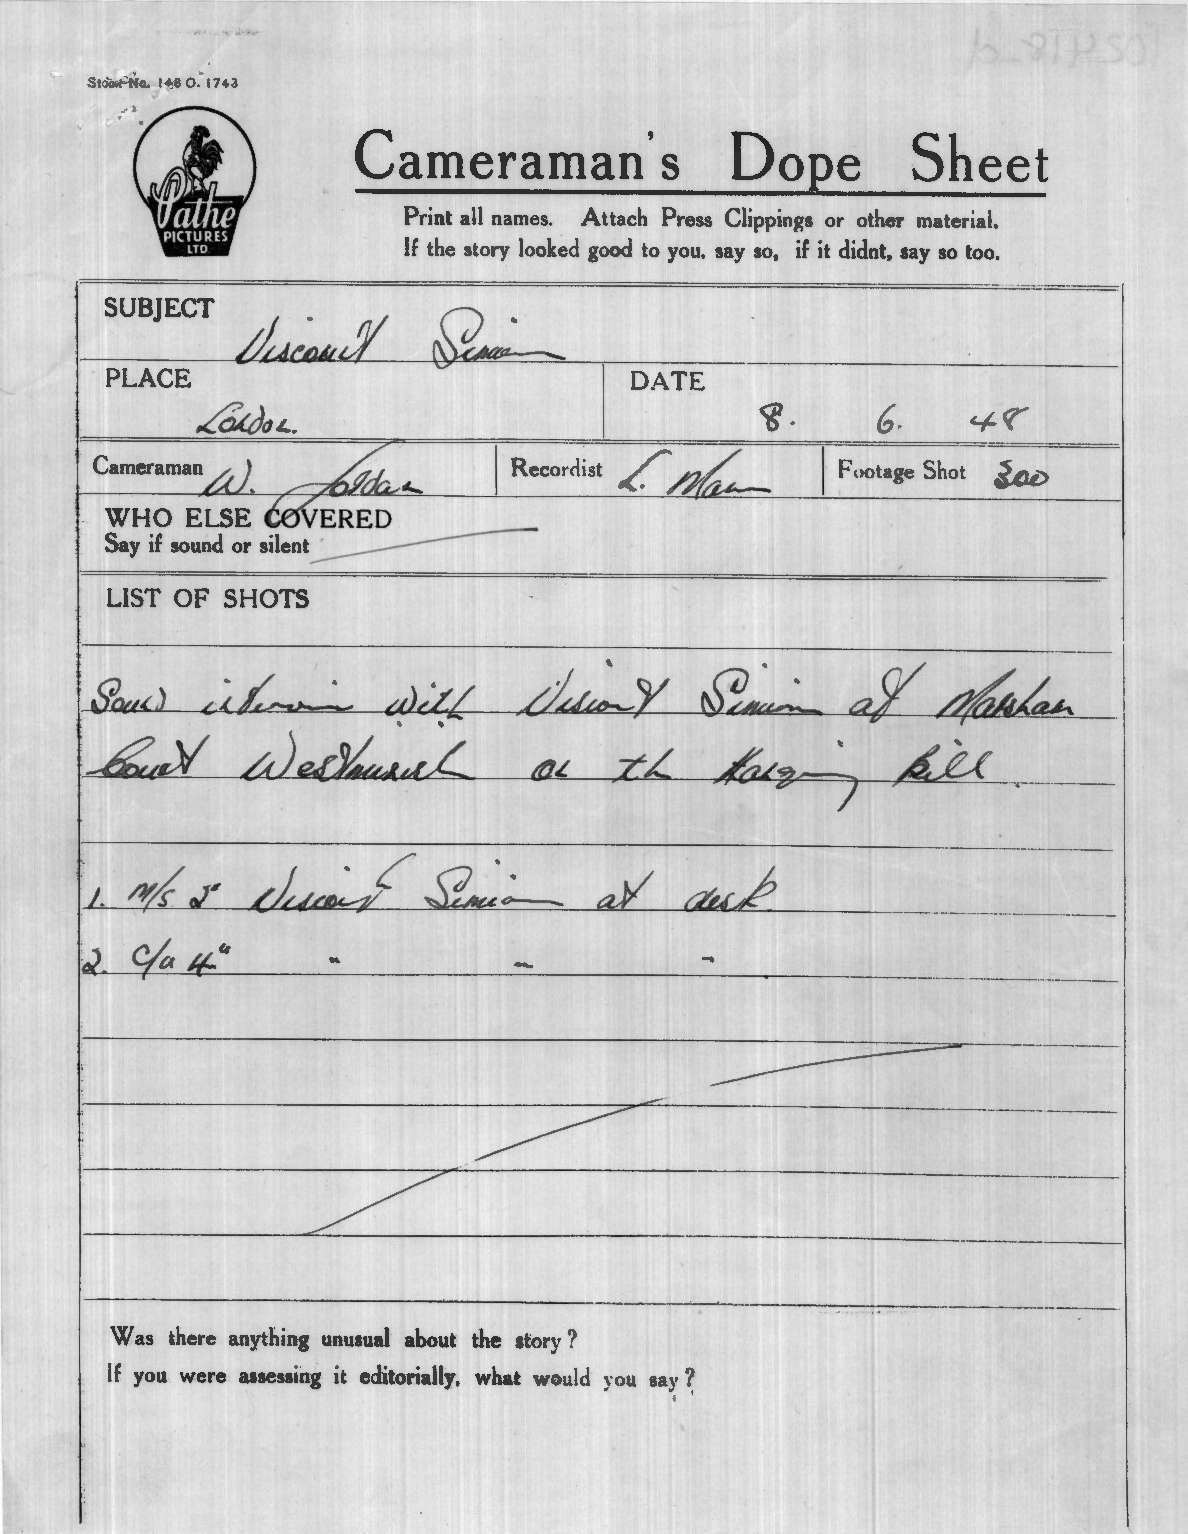 Pathe
PICTURES
LTD
Cameraman's Dope Sheet
Print all names. Attach Press Clippings or other material.
If the story looked good to you, say so, if it didnt, say so too.
SUBJECT
Viscount Simon
PLACE
London.
DATE
8. 6. 48
Cameraman W. Jordan
Recordist L. Mann
Footage Shot 300
WHO ELSE COVERED
Say if sound or silent
LIST OF SHOTS
Sound interview with Viscount Simon at Marsham
Court Westminster on the Hanging Bill.
1. M/S 2" Viscount Simon at desk.
2. C/U 4" " " "
Was there anything unusual about the story?
If you were assessing it editorially, what would you say?